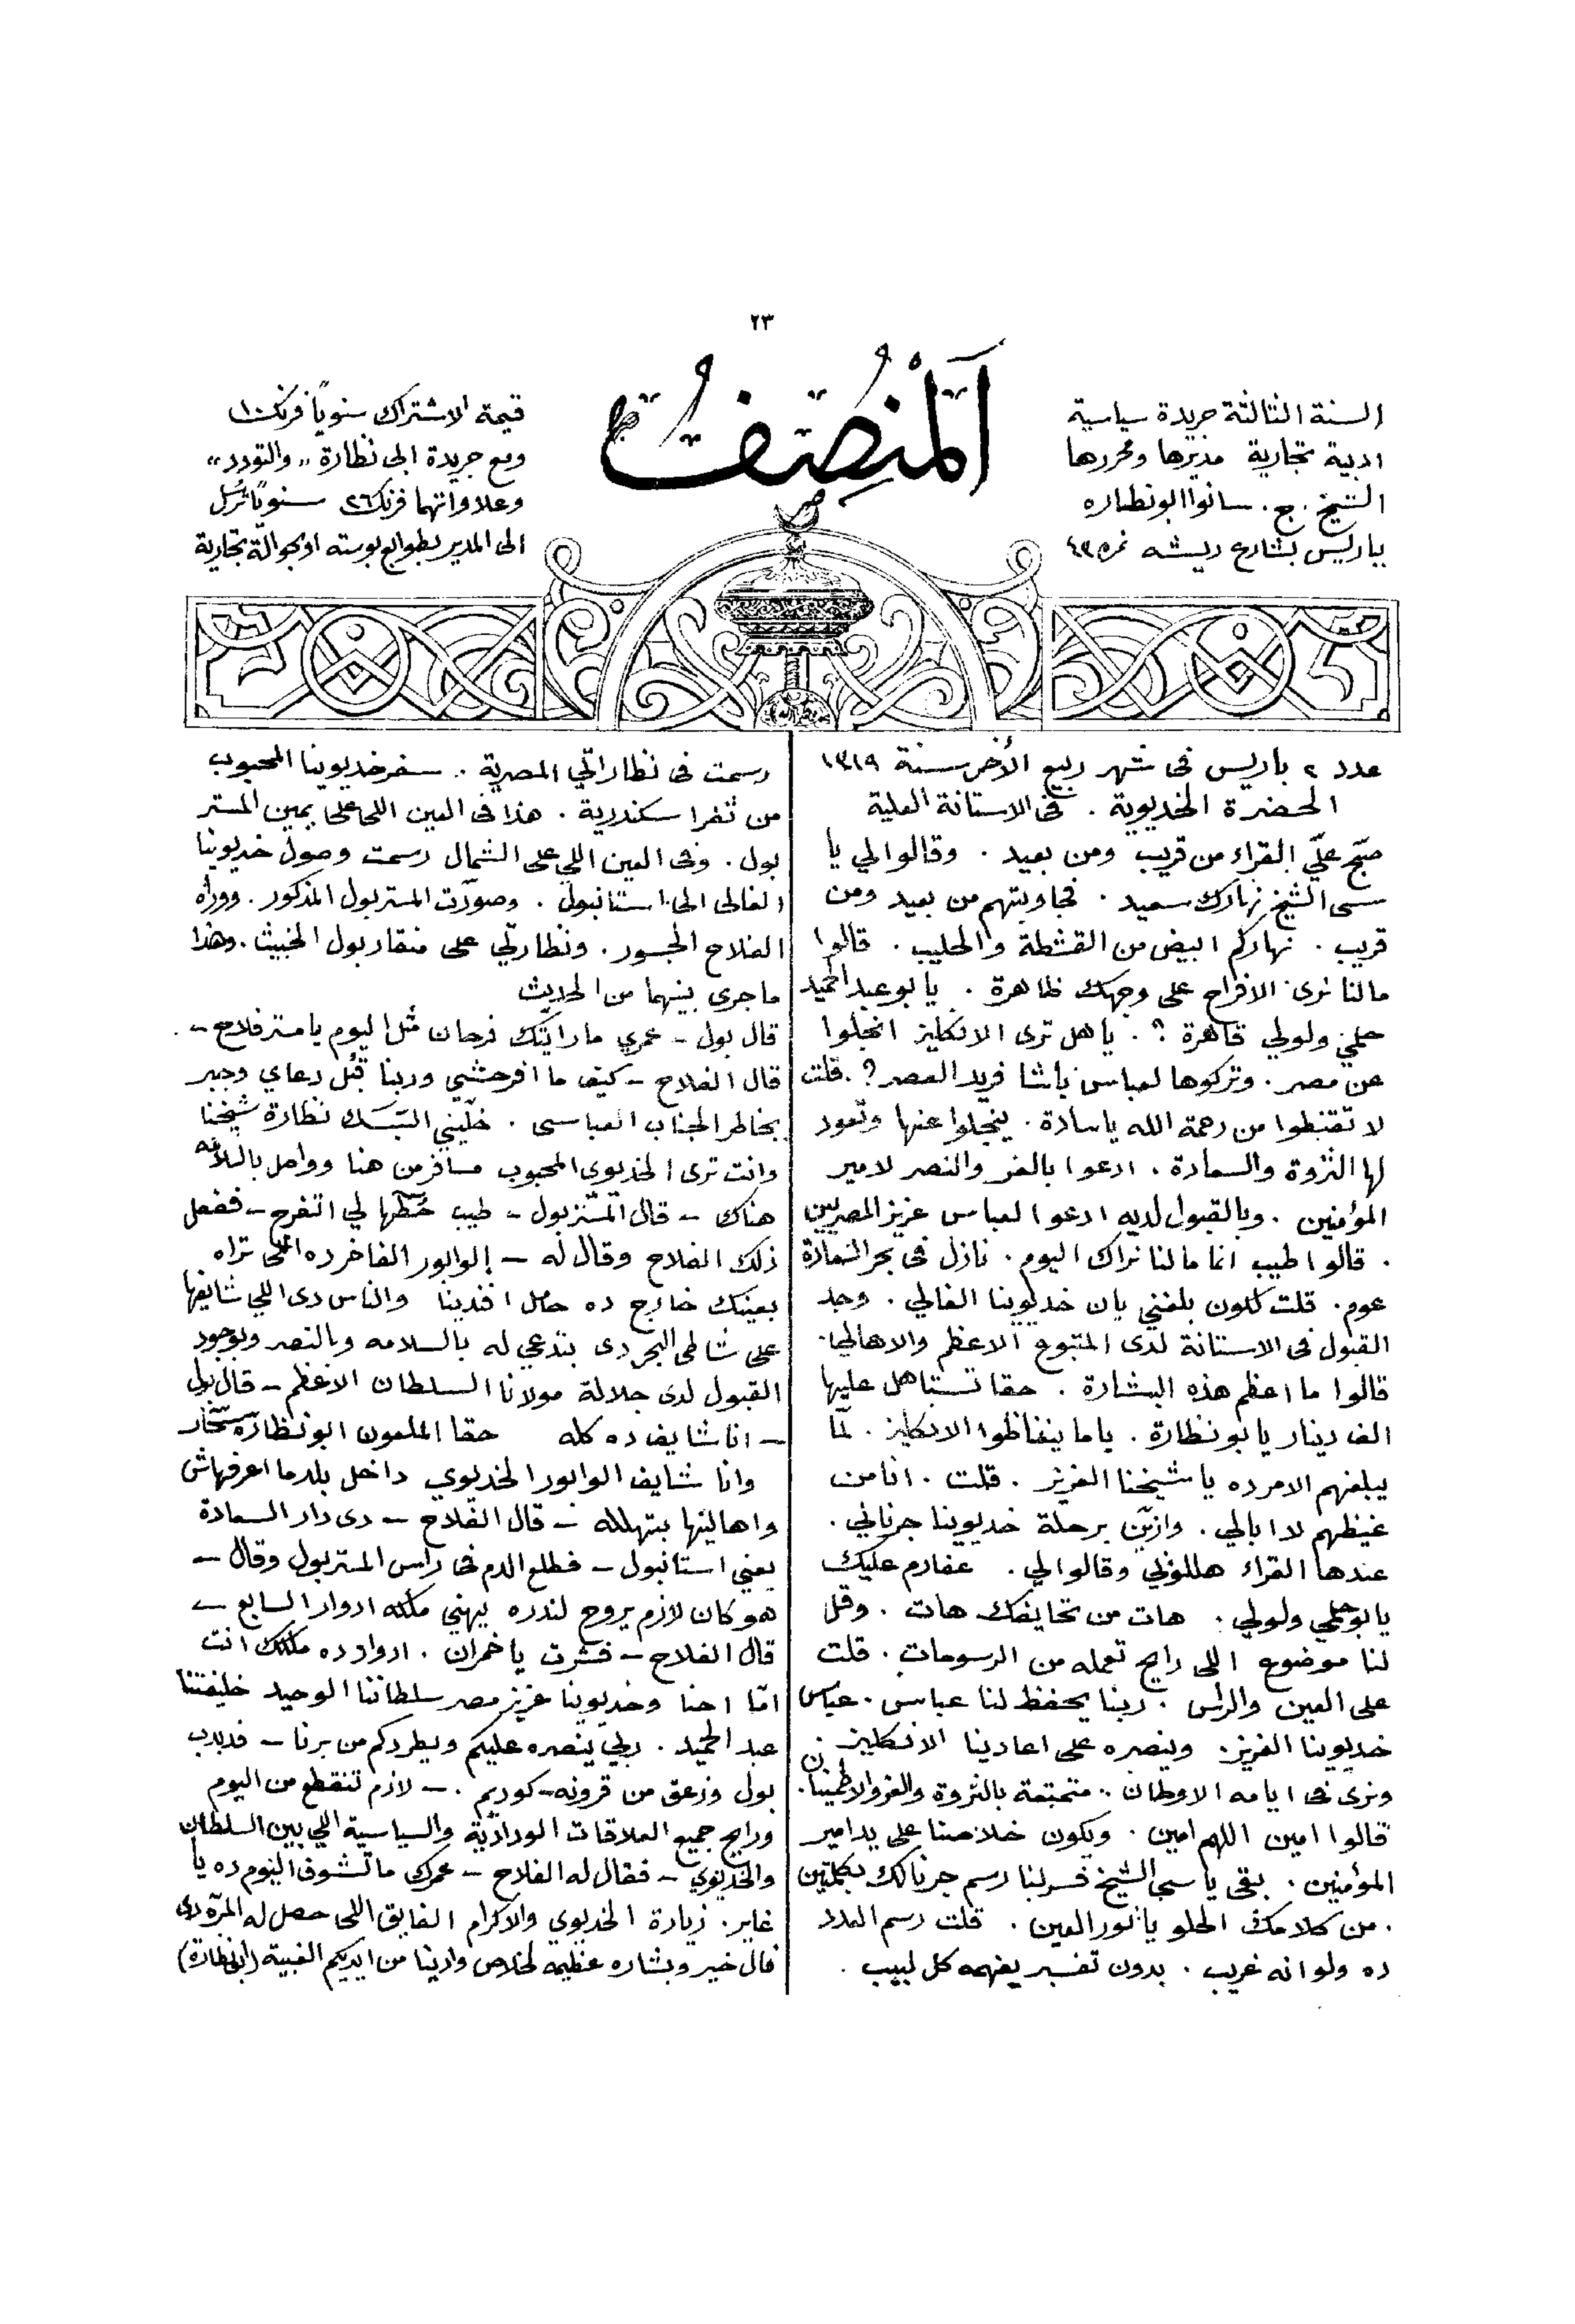 ٢٣
المُنصِف
السنة الثالثة جريدة سياسية
ادبية تجارية مديرها ومحررها
الشيخ ج. سانوا ابو نظاره
بباريس بشارع ريشه نمره ٤٣
قيمة الاشتراك سنوياً فرنك ١٠
ومع جريدة ابى نظارة "والتودد"
وعلاواتهما فرنك ٢٦ سنوياً تُرسل
الى المدير بطوابع بوسته او بحوالة تجارية
عدد ٢ باريس فى شهر ربيع الأخر سنة ١٣١٩
الحضرة الخديوية . فى الاستانة العلية
صبّح علّي القراء من قريب ومن بعيد . وقالوا لي يا
سى الشيخ نهارك سعيد . فجاوبتهم من بعيد ومن
قريب . نهاركم ابيض من القشطة والحليب . قالوا
مالنا نرى الافراح على وجهك ظاهرة . يا بو عبد الحميد
حلمي ولولي قاهرة ؟ . ياهل ترى الانكليز انجلوا
عن مصر . وتركوها لعباس باشا فريد العصر ? . قلت
لا تقنطوا من رحمة الله ياسادة . ينجلوا عنها وتعود
لها الثروة والسعادة . ادعوا بالعز والنصر لامير
المؤمنين . وبالقبول لديه ادعوا لعباس عزيز المصريين
. قالوا طيب انما مالنا نراك اليوم . نازل فى بحر السعادة
عوم . قلت لكون بلغني بان خديوينا الغالي . وجد
القبول فى الاستانة لدى المتبوع الاعظم والاهالي .
قالوا ما اعظم هذه البشارة . حقا تستاهل عليها
الف دينار يا بو نظارة . ياما ينغاظوا الانكليز . لمّا
يبلغهم الامر ده يا شيخنا العزيز . قلت . انا من
غيظهم لا ابالي . وازيّن برحلة خديوينا جرنالي .
عندها القراء هللوني وقالوا لي . عفارم عليك
يا بو حلمي ولولي . هات من تحايفك هات . وقل
لنا موضوع اللى رايح تعمله من الرسومات . قلت
على العين والرأس . ربنا يحفظ لنا عباس . عباس
خديوينا العزيز . وينصره على اعادينا الانكليز .
ونرى فى ايامه الاوطان . متمتعة بالثروة والعز والاطمئنان .
قالوا امين اللهم امين . ويكون خلاصنا على يد امير
المؤمنين . بقى يا سي الشيخ فسر لنا رسم جرنالك بكلمتين
. من كلامك الحلو يا نور العين . قلت رسم العدد
ده ولو انه غريب . بدون تفسير يفهمه كل لبيب .
رسمت فى نظاراتي المصرية . سفر خديوينا المحبوب
من ثغر اسكندرية . هذا فى العين اللى على يمين المستر
بول . وفى العين اللي على الشمال رسمت وصول خديوينا
الغالى الى استانبول . وصوّرت المستر بول المذكور . ووراه
الفلاح الجسور . ونظارتي على منقار بول الخبيث . وهذا
ماجرى بينهما من الحديث
قال بول – عمري ما رايتك فرحان مثل اليوم يا مستر فلاح – .
قال الفلاح – كيف ما افرحشي وربنا قبل دعاي وجبر
بخاطر الجناب العباسى . خلّيني البّسك نظارة شيخنا
وانت ترى الخديوى المحبوب مسافر من هنا وواصل بالسلامه
هناك – قال المستر بول – طيب حُطّها لي اتفرج – ففعل
ذلك الفلاح وقال له – الوابور الفاخر ده اللى تراه
بعينك خارج ده حامل افندينا والناس دى اللي شايفها
على شاطى البحر دى بتدعي له بالسلامه وبالنصر وبوجود
القبول لدى جلالة مولانا السلطان الاعظم – قال بول
– انا شايف ده كله حقا الملعون ابو نظارة سحّار
وانا شايف الوابور الخديوي داخل بلد ما اعرفهاش
واهاليها بتهلله – قال الفلاح – دى دار السعادة
يعني استانبول – فطلع الدم فى راس المستر بول وقال –
هو كان لازم يروح لندره يهني ملكه ادوار السابع –
قال الفلاح – فشرت يا خمران . ادوار ده ملكك انت
امّا احنا وخديوينا عزيز مصر سلطاننا الوحيد خليفتنا
عبد الحميد . ربي ينصره عليكم ويطردكم من برنا – فدبدب
بول وزعق من قرونه – كوديم . – لازم تنقطع من اليوم
ورايح جميع العلاقات الودادية والسياسية اللي بين السلطان
والخديوي – فقال له الفلاح – عمرك ما تشوف اليوم ده يا
غاير . زيارة الخديوي والاكرام الفايق اللى حصل له المرّة دى
فال خير وبشاره عظيمه لخلاص وادينا من ايديكم الغبية (ابو نظارة)